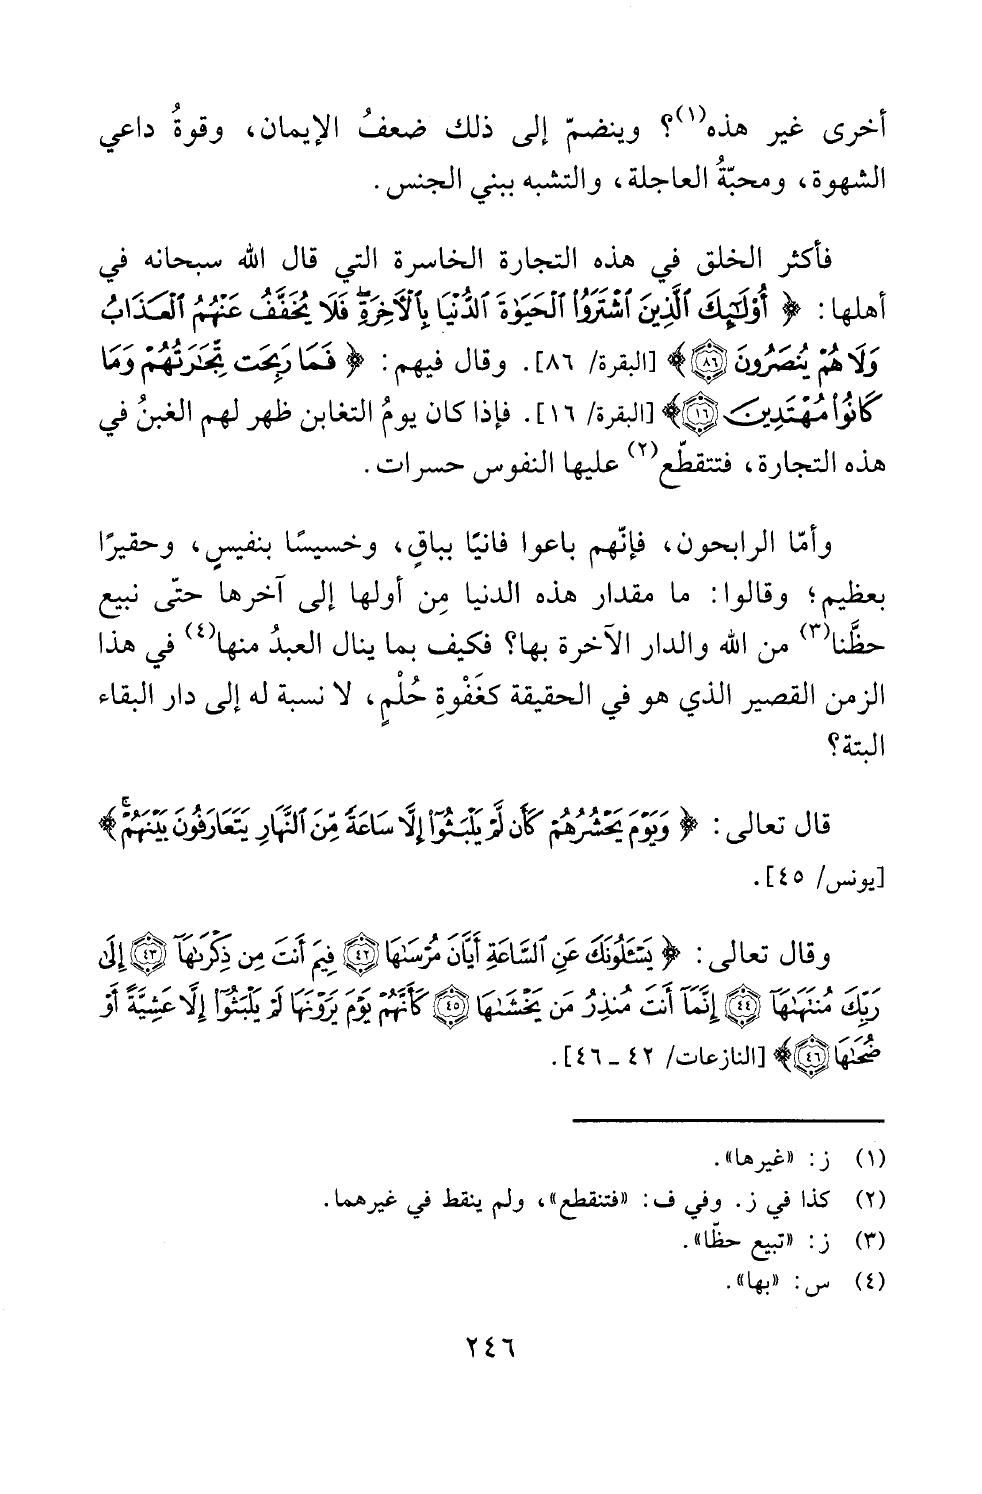 أخرى غير هذه(١)؟ وينضمّ إلى ذلك ضعفُ الإيمان، وقوةُ داعي
الشهوة، ومحبّةُ العاجلة، والتشبه ببني الجنس.
فأكثر الخلق في هذه التجارة الخاسرة التي قال الله سبحانه في
أهلها: ﴿ أُوْلَٰٓئِكَ ٱلَّذِينَ ٱشْتَرَوُا۟ ٱلْحَيَوٰةَ ٱلدُّنْيَا بِٱلْءَاخِرَةِۖ فَلَا يُخَفَّفُ عَنْهُمُ ٱلْعَذَابُ
وَلَا هُمْ يُنصَرُونَ ٨٦﴾ [البقرة/ ٨٦]. وقال فيهم: ﴿ فَمَا رَبِحَت تِّجَٰرَتُهُمْ وَمَا
كَانُوا۟ مُهْتَدِينَ ١٦﴾ [البقرة/ ١٦]. فإذا كان يومُ التغابن ظهر لهم الغبنُ في
هذه التجارة، فتتقطّع(٢) عليها النفوس حسرات.
وأمّا الرابحون، فإنّهم باعوا فانيًا بباقٍ، وخسيسًا بنفيسٍ، وحقيرًا
بعظيم؛ وقالوا: ما مقدار هذه الدنيا مِن أولها إلى آخرها حتّى نبيع
حظَّنا(٣) من الله والدار الآخرة بها؟ فكيف بما ينال العبدُ منها(٤) في هذا
الزمن القصير الذي هو في الحقيقة كغَفْوةِ حُلْمٍ، لا نسبة له إلى دار البقاء
البتة؟
قال تعالى: ﴿ وَيَوْمَ يَحْشُرُهُمْ كَأَن لَّمْ يَلْبَثُوٓا۟ إِلَّا سَاعَةً مِّنَ ٱلنَّهَارِ يَتَعَارَفُونَ بَيْنَهُمْۚ ﴾
[يونس/ ٤٥].
وقال تعالى: ﴿ يَسْـَٔلُونَكَ عَنِ ٱلسَّاعَةِ أَيَّانَ مُرْسَىٰهَا ٤٢ فِيمَ أَنتَ مِن ذِكْرَىٰهَآ ٤٣ إِلَىٰ
رَبِّكَ مُنتَهَىٰهَآ ٤٤ إِنَّمَآ أَنتَ مُنذِرُ مَن يَخْشَىٰهَا ٤٥ كَأَنَّهُمْ يَوْمَ يَرَوْنَهَا لَمْ يَلْبَثُوٓا۟ إِلَّا عَشِيَّةً أَوْ
ضُحَىٰهَا ٤٦﴾ [النازعات/ ٤٢ ـ ٤٦].
(١) ز: «غيرها».
(٢) كذا في ز. وفي ف: «فتنقطع»، ولم ينقط في غيرهما.
(٣) ز: «تبيع حظّا».
(٤) س: «بها».
٢٤٦